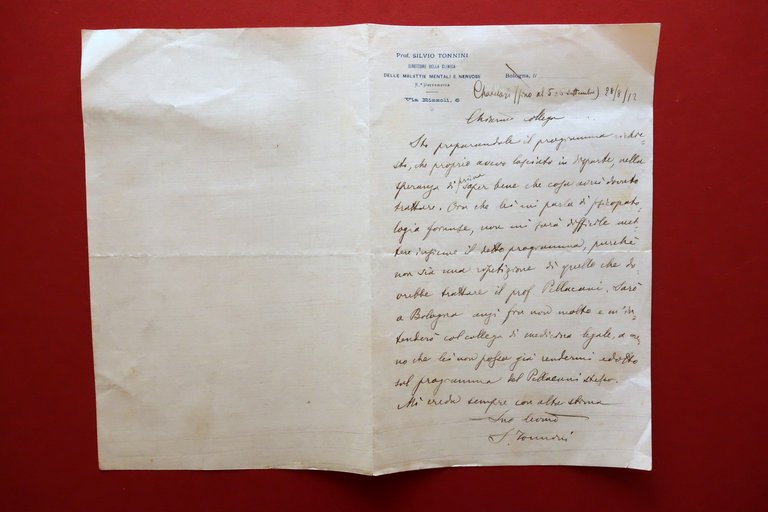 Prof. SILVIO TONNINI
DIRETTORE DELLA CLINICA
DELLE MALATTIE MENTALI E NERVOSE
Bologna, li
Via Rizzoli, 6
(fino al 5 settembre) 28/8/12
Chiarmo collega
Sto preparandole il programma richie-
sto, che proprio avevo lasciato in disparte, nella
speranza di prima saper bene che cosa avrei dovuto
trattare. Ora che lei mi parla di psicopato-
logia forense, non mi sarà difficile met-
tere insieme il detto programma, purchè
non sia una ripetizione di quello che do-
vrebbe trattare il prof Pellacani. Sarò
a Bologna anzi fra non molto e m'in-
tenderò col collega di medicina legale, a me-
no che lei non possa già rendermi edotto
sul programma del Pellacani stesso.
Mi creda sempre con alta stima
Suo devmo
S. Tonnini